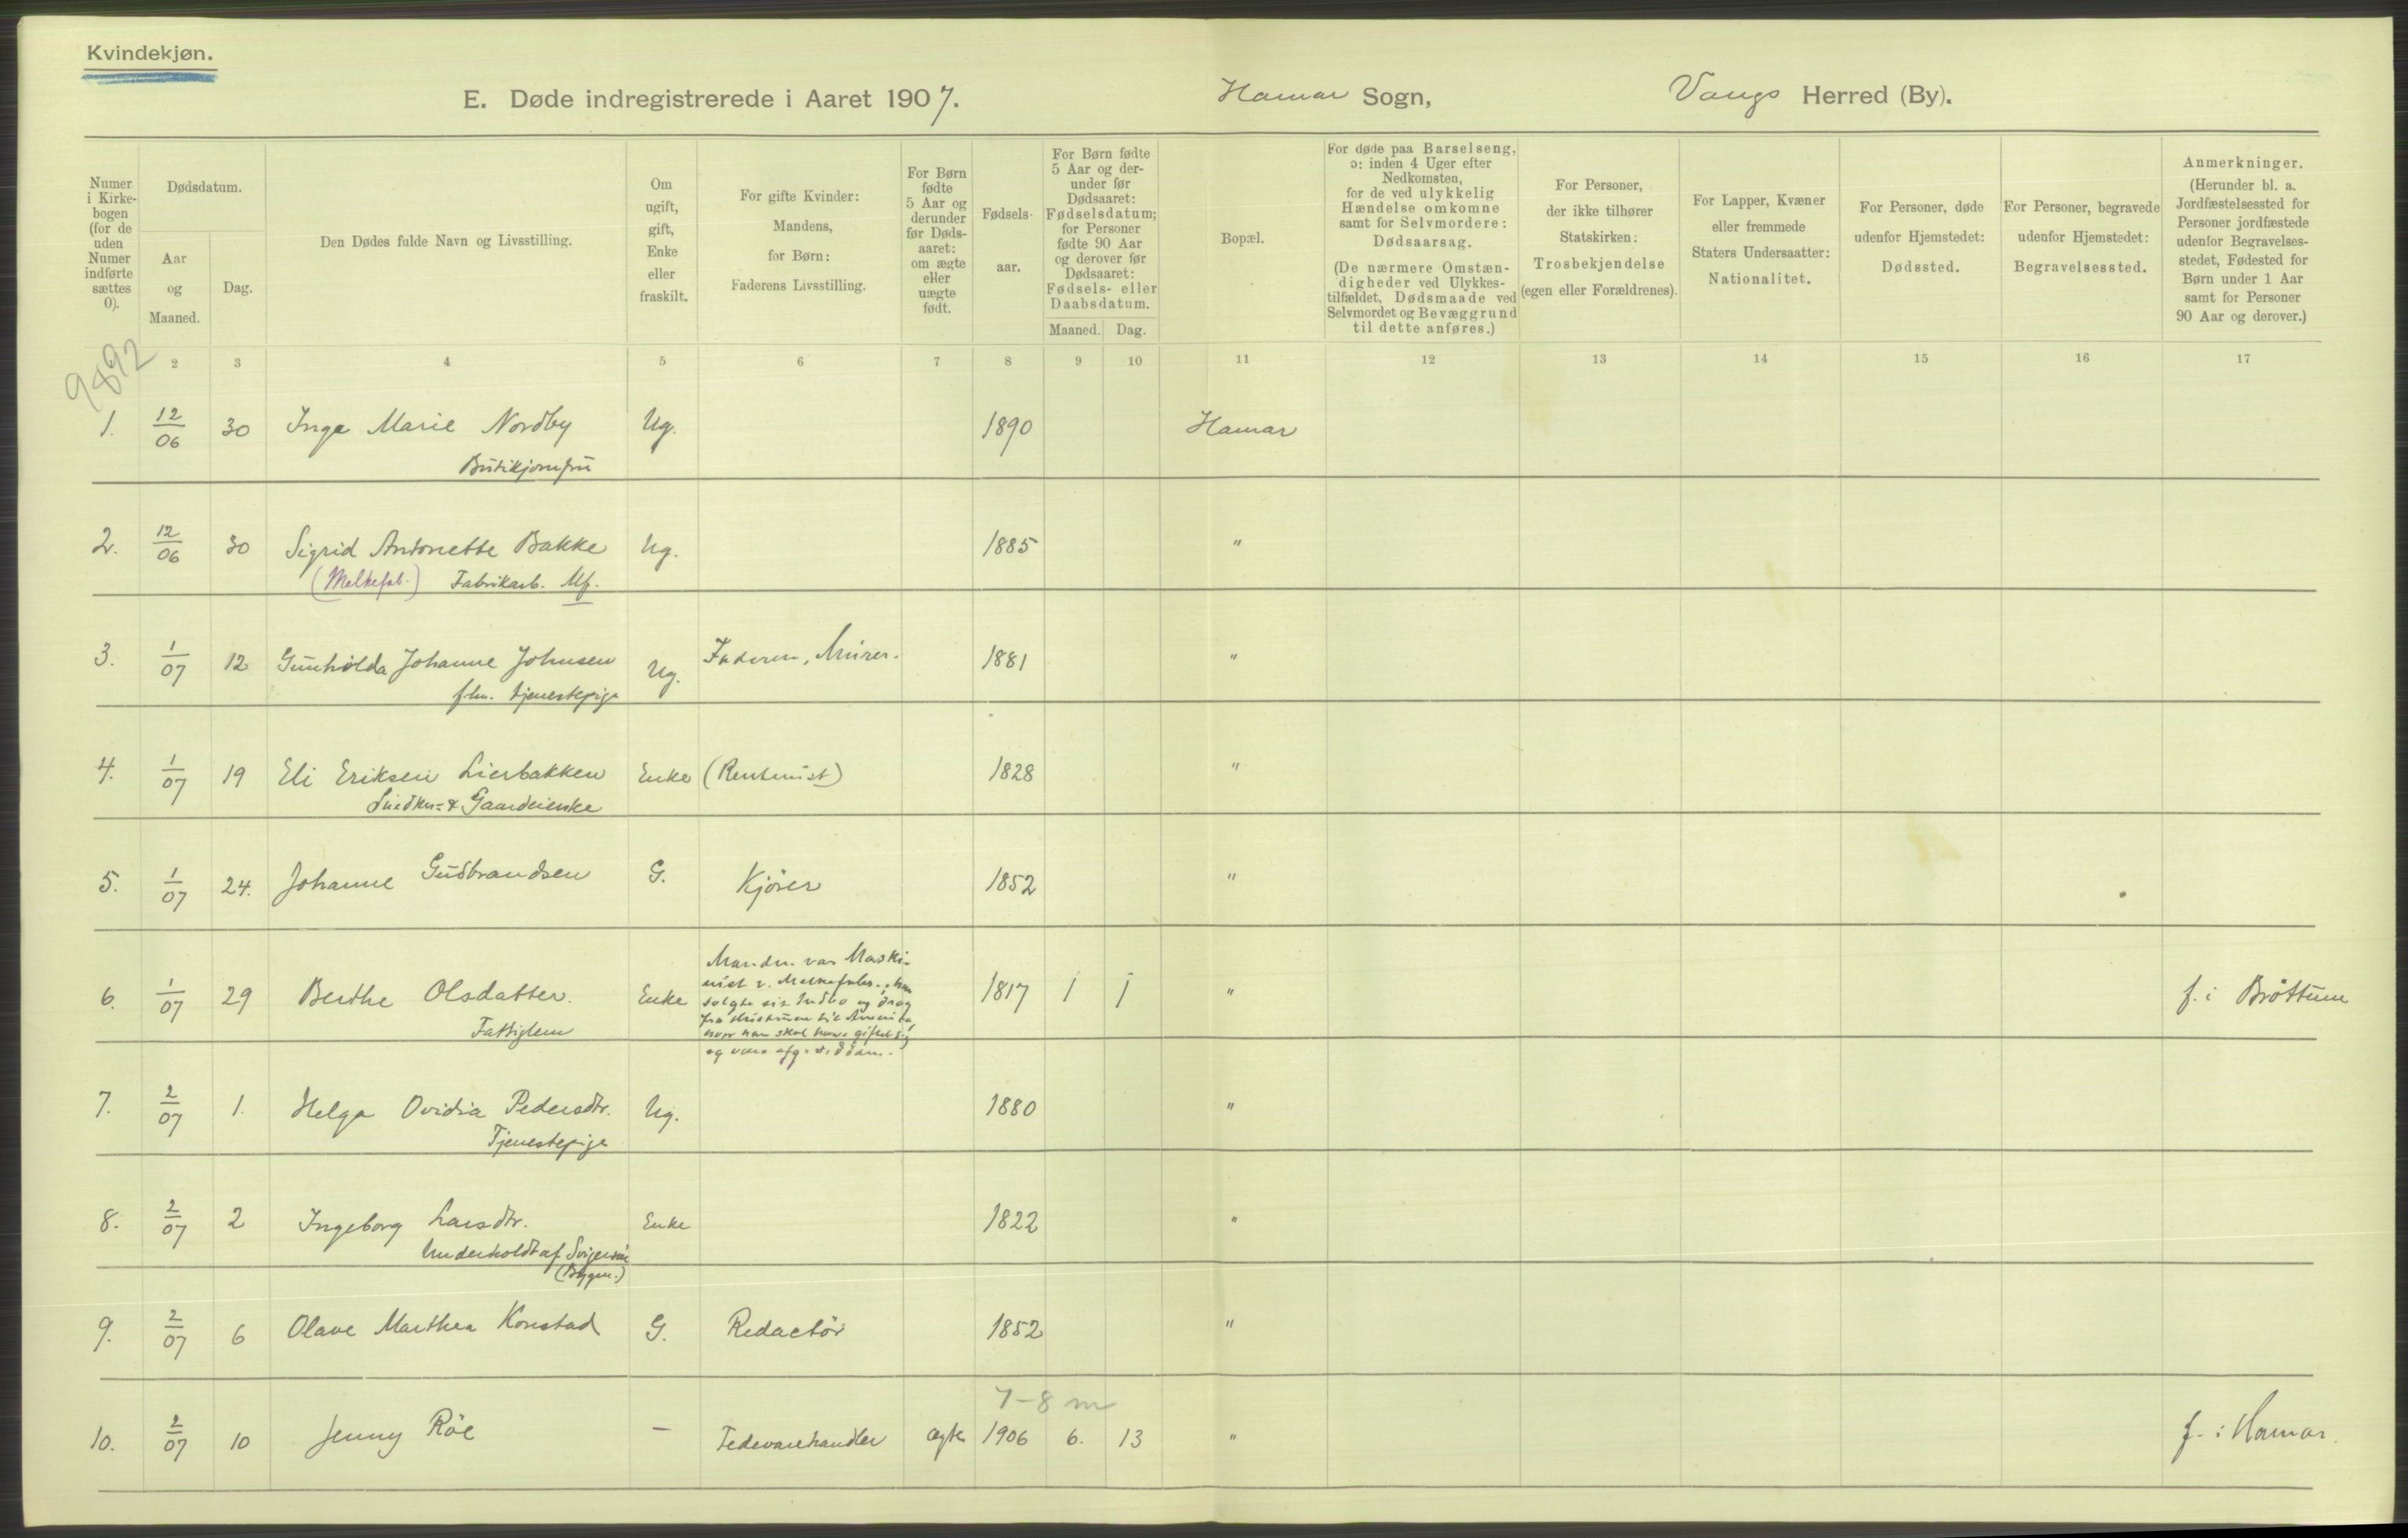 Kvindekjøn.
E. Døde indregistrerede i Aaret 1907. Hamar Sogn, Vangs Herred (By).
Numer i Kirke-bogen (for de uden Numer indførte sættes 0).
Dødsdatum.
Aar og Maaned.
Dag.
Den Dødes fulde Navn og Livsstilling.
Om ugift, gift, Enke eller fraskilt.
For gifte Kvinder: Mandens, for Børn: Faderens Livsstilling.
For Børn fødte 5 Aar og derunder før Døds-aaret: om ægte eller uægte født.
Fødsels-aar.
For Børn fødte 5 Aar og der-under før Dødsaaret: Fødselsdatum; for Personer fødte 90 Aar og derover før Dødsaaret: Fødsels- eller Daabsdatum.
Maaned. Dag.
Bopæl.
For døde paa Barselseng, ɔ: inden 4 Uger efter Nedkomsten, for de ved ulykkelig Hændelse omkomne samt for Selvmordere: Dødsaarsag. (De nærmere Omstæn-digheder ved Ulykkes-tilfældet, Dødsmaade ved Selvmordet og Bevæggrund til dette anføres.)
For Personer, der ikke tilhører Statskirken: Trosbekjendelse (egen eller Forældrenes).
For Lapper, Kvæner eller fremmede Staters Undersaatter: Nationalitet.
For Personer, døde udenfor Hjemstedet: Dødssted.
For Personer, begravede udenfor Hjemstedet: Begravelsessted.
Anmerkninger. (Herunder bl. a. Jordfæstelsessted for Personer jordfæstede udenfor Begravelses-stedet, Fødested for Børn under 1 Aar samt for Personer 90 Aar og derover.)
9892
2 3 4 5 6 7 8 9 10 11 12 13 14 15 16 17
1. 12/06 30 Inga Marie Nordby Ug. 1890 Hamar
Butikjomfru
2. 12/06 30 Sigrid Antonette Bakke Ug. 1885 "
(Melkefab.) Fabrikarb. Mf.
3. 1/07 12 Gunhilda Johanne Johnsen Ug. Faderen, Murer. 1881 "
fhv. tjenestepige
4. 1/07 19 Eli Eriksen Lierbakken Enke (Rentenist) 1828 "
Snedker= & Gaardeienke
5. 1/07 24. Johanne Gudbrandsen G. Kjører 1852 "
6. 1/07 29 Berthe Olsdatter. Enke 1817 1 1 " f. i Brøttum
Fattiglem
Manden var Maski-
nist v. Melkefabr.; han
solgte sit Indbo og drog
fra Hustruen til Amerika,
hvor han skal have giftet sig
og være afg. v. Døden.
7. 2/07 1. Helga Ovidia Pedersdtr. Ug. 1880 "
Tjenestepige
8. 2/07 2 Ingeborg Larsdtr. Enke 1822 "
Underholdt af Svigersøn
(Bygm.)
9. 2/07 6 Olave Marthea Konstad G. Redactør 1852 "
7-8 m
10. 2/07 10 Jenny Röe — Fedevarehandler ægte 1906 6. 13 " f. i Hamar.